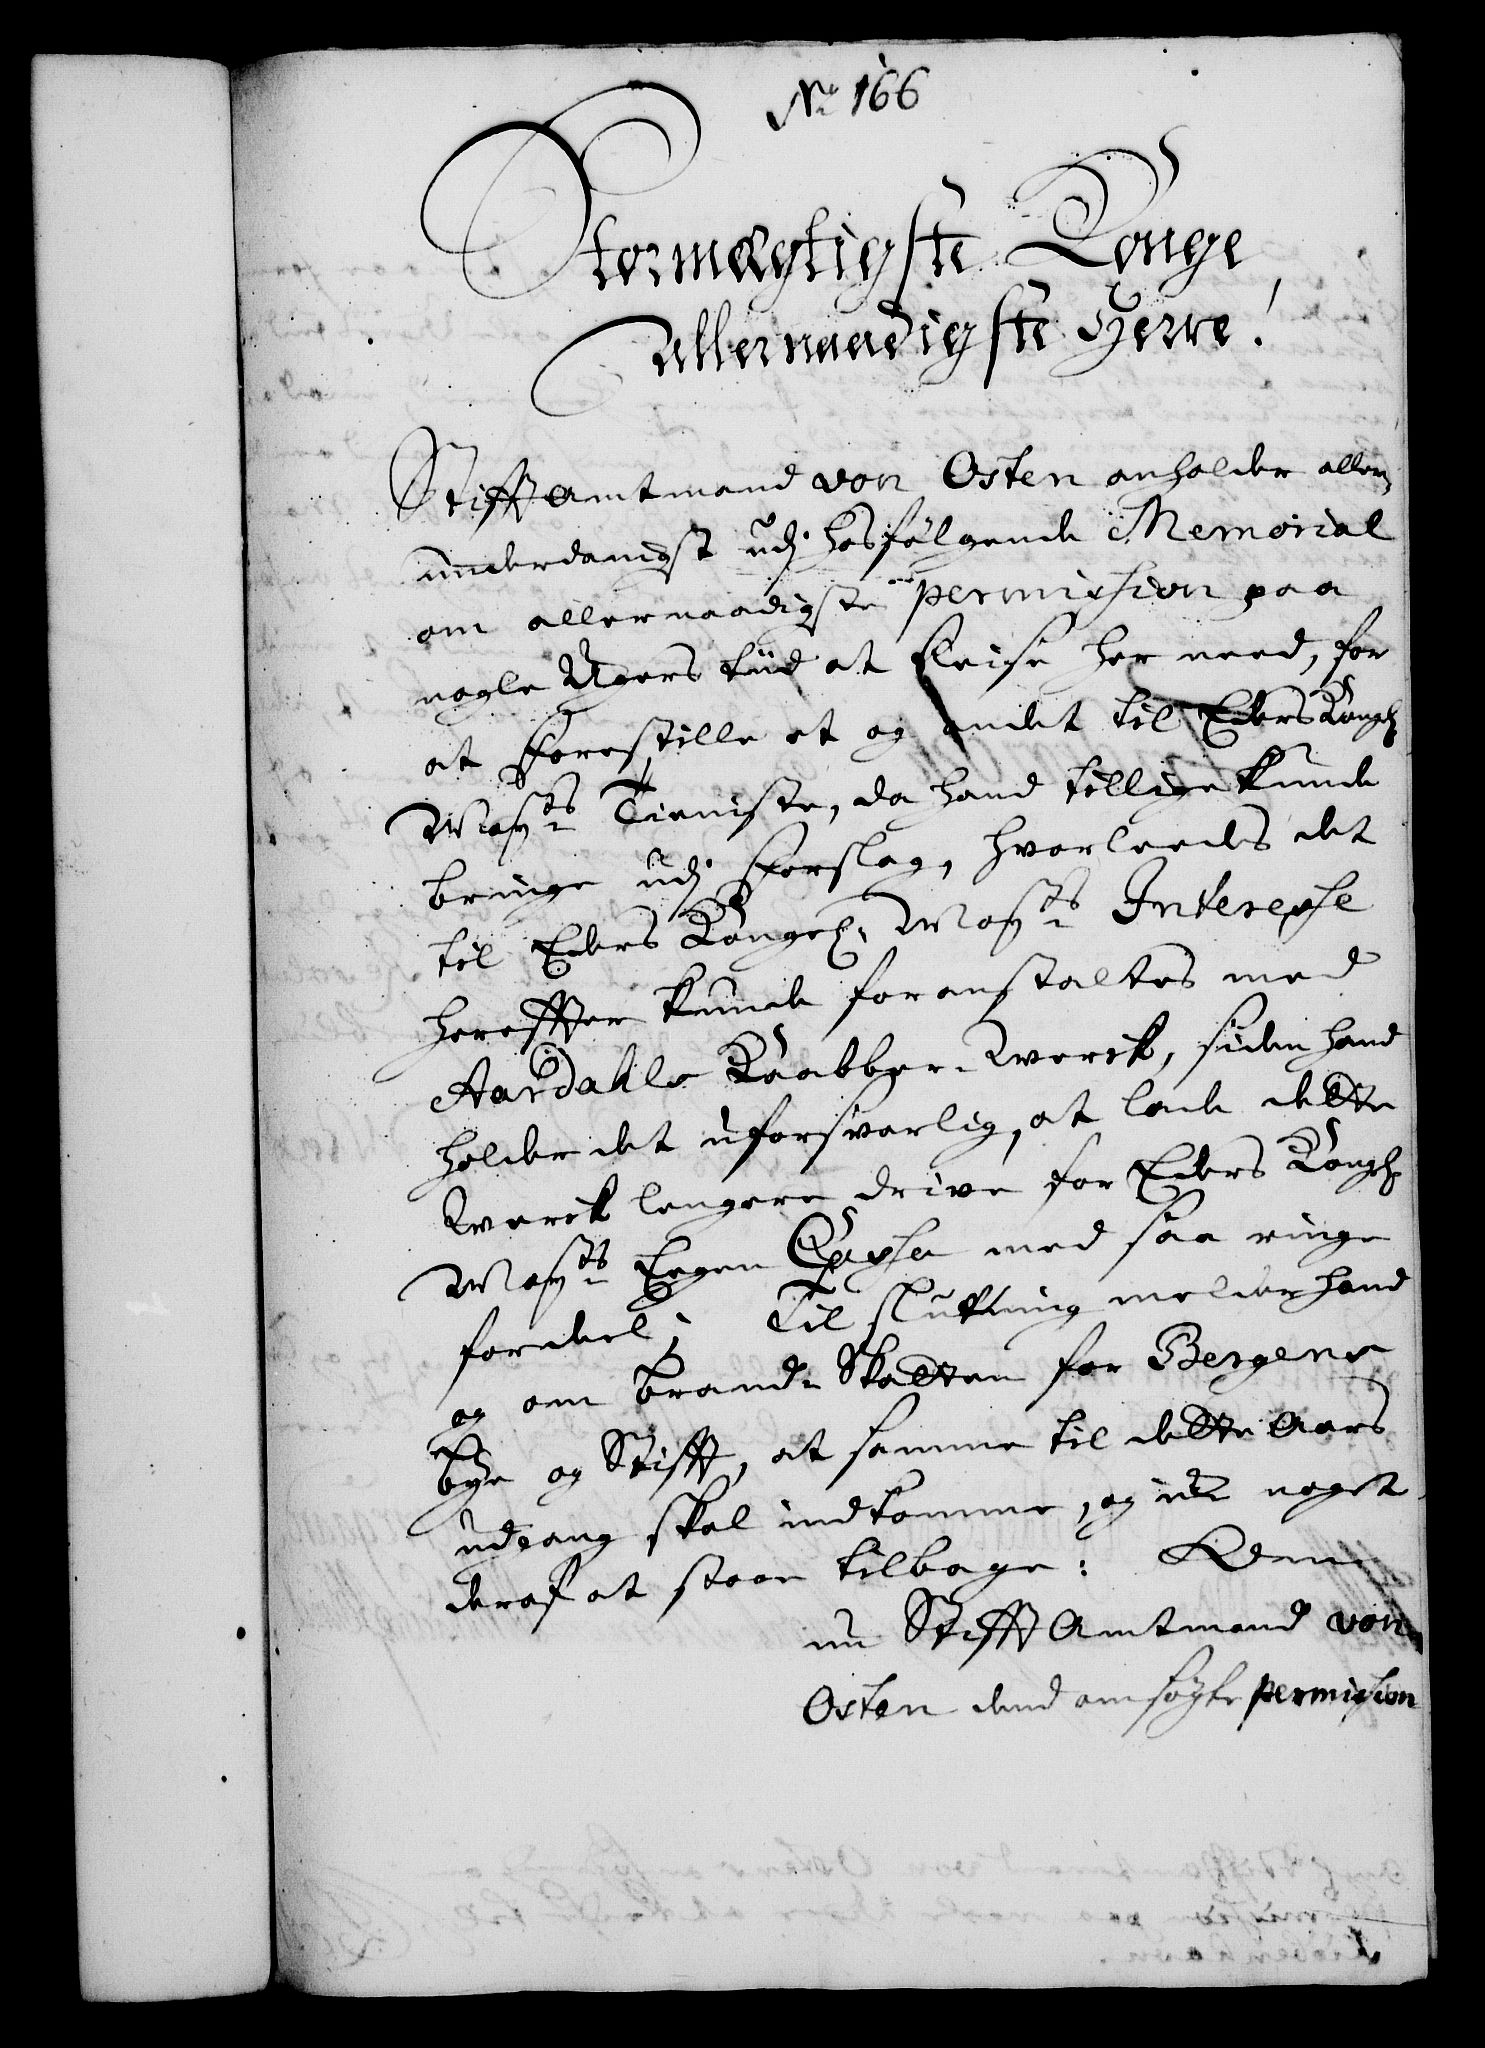 No 166
Stormægtigste Konge
allernaadigste Herre!
Stifftamtmand von Osten anholder aller,
underdanigst udj hosfølgende Memorial
om allernaadigste permission paa
nogle Ugers tiid at Reise her need, for
at forestille et og andet til Eders Kongl
Mayts Tieniste, da hand tillige kunde
bringe udj forslag, hvorleedes det
til Eders Kongel: Mayts Interesse
hereffter kunde foranstaltes med
Aardahls Kaabber-Werck, siden hand
holder det uforsvarlig, at lade dette
Werck lengere drive for Eders Kongl
Mayts Egen Casse med saa ringe
fordeel; Til slutning melder hand
og om Brand-Skatten for Bergens
bye og Stifft, at samme til dette Aars
udgang skal indkomme, og ej noget
deraf at staae tilbage: Om
nu StifftAmtmand von
Osten dend ansøgte permission